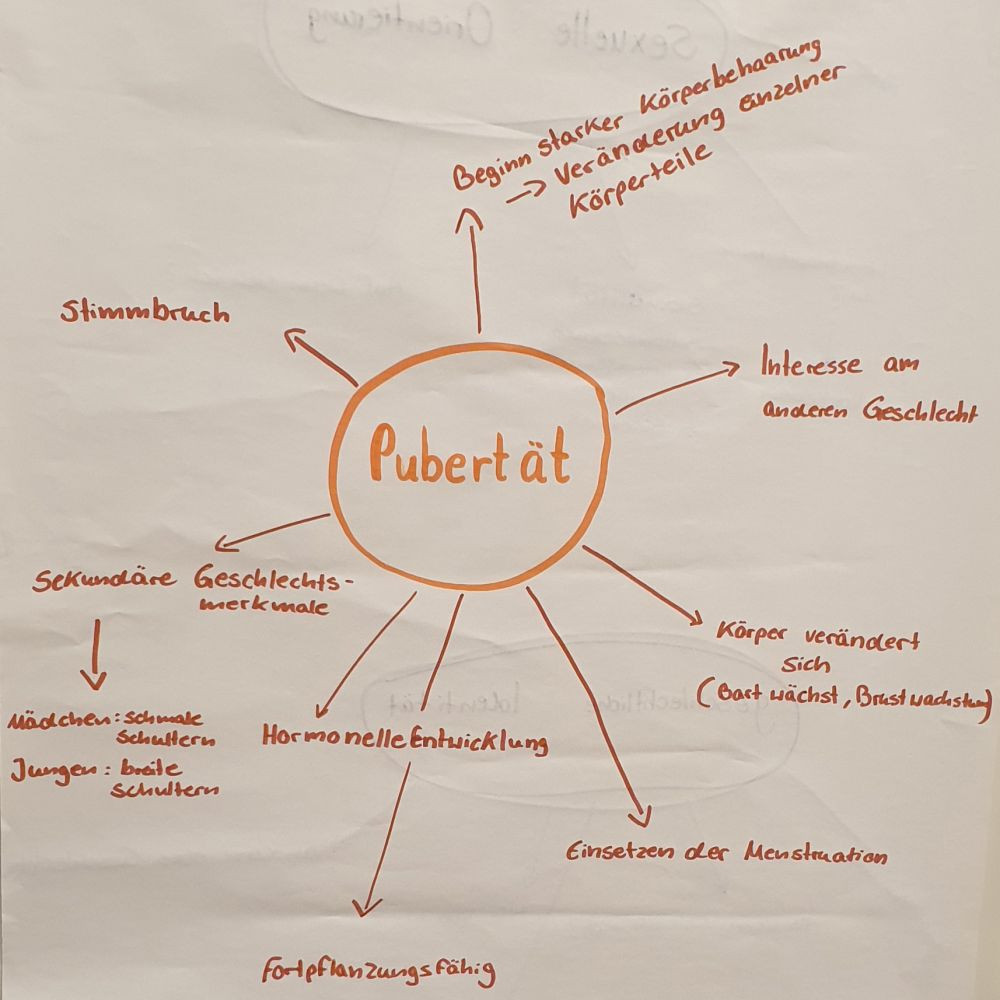 Sexuelle Orientierung
Beginn starker Körperbehaarung
-> Veränderung einzelner
Körperteile
Stimmbruch
Interesse am
anderen Geschlecht
Pubertät
Sekundäre Geschlechts-
merkmale
Mädchen: schmale
Schultern
Jungen: breite
Schultern
Körper verändert
sich
(Bart wächst, Brustwachstum)
Identität
Hormonelle Entwicklung
Einsetzen der Menstruation
Fortpflanzungsfähig